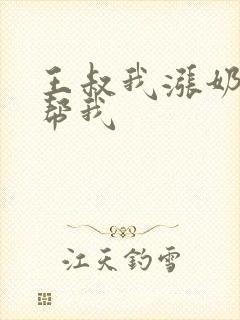 王叔我涨奶
帮我
江天钓雪